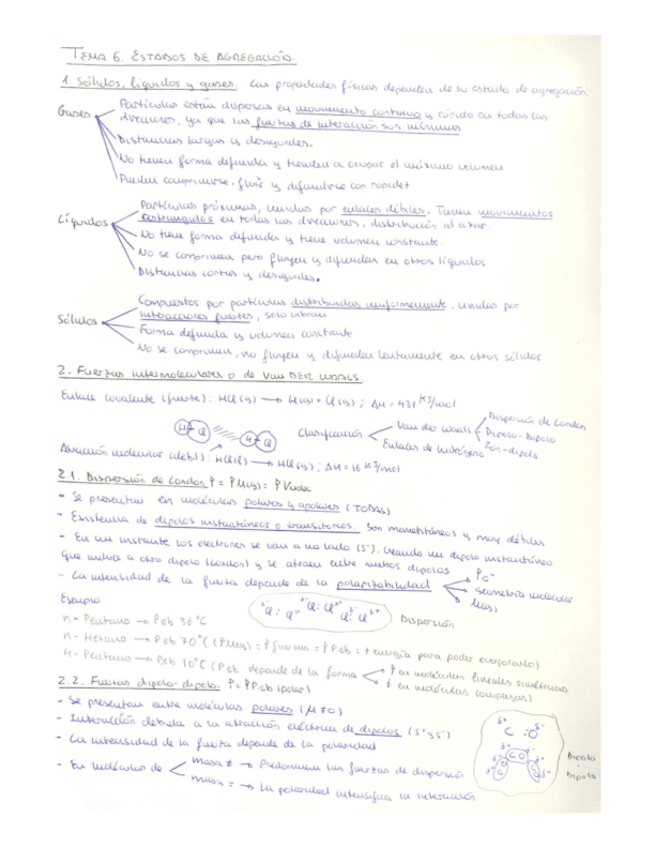 TEMA 6. ESTADOS DE AGREGACIÓN.
1. Sólidos, líquidos y gases. Las propiedades físicas dependen de su estado de agregación
Gases
Partículas están dispersas en movimiento continuo y rápido en todas las
direcciones, ya que las fuerzas de interacción son mínimas
Distancias largas y desiguales.
No tienen forma definida y tienden a ocupar el máximo volumen
Pueden comprimirse, fluir y difundirse con rapidez
Líquidos
Partículas próximas, unidas por enlaces débiles. Tienen movimientos
restringidos en todas las direcciones, distribución al azar.
No tiene forma definida y tiene volumen constante.
No se comprimen pero fluyen y difunden en otros líquidos
Distancias cortas y desiguales.
Sólidos
Compuestos por partículas distribuidas uniformemente, unidas por
interacciones fuertes, solo vibran
Forma definida y volumen constante
No se comprimen, no fluyen y difunden lentamente en otros sólidos
2. Fuerzas intermoleculares o de Van DER WAALS.
Enlace covalente (fuerte): HCl(g) → H(g) + Cl(g); ΔH = 431 KJ/mol
H Cl H Cl
Clasificación
Van der Waals
Dispersión de London
Dipolo-Dipolo
Ion-dipolo
Enlaces de hidrógeno
Atracción molecular (débil): HCl(l) → HCl(g); ΔH = 16 KJ/mol
2.1. Dispersión de London
- Se presentan en moléculas polares y apolares (TODAS)
- Existencia de dipolos instantáneos o transitorios. Son momentáneos y muy débiles
- En un instante los electrones se van a un lado (δ-), creando un dipolo instantáneo
que induce a otro dipolo (London) y se atraen entre ambos dipolos
- La intensidad de la fuerza depende de la polarizabilidad
geometría molecular
Ejemplo
Dispersión
n- Pentano → Peb 36°C
n- Hexano → Peb 70°C (
energía para poder evaporarlo)
Pentano → Peb 10°C (Peb depende de la forma
en moléculas lineales simétricas
en moléculas complejas)
2.2. Fuerzas dipolo-dipolo.
- Se presentan entre moléculas polares (μ≠0)
- Interacción debida a la atracción eléctrica de dipolos (δ+ y δ-)
- La intensidad de la fuerza depende de la polaridad
- En moléculas de
masa ≠ → Predominan las fuerzas de dispersión
masa = → La polaridad intensifica la interacción
Dipolo
-
Dipolo